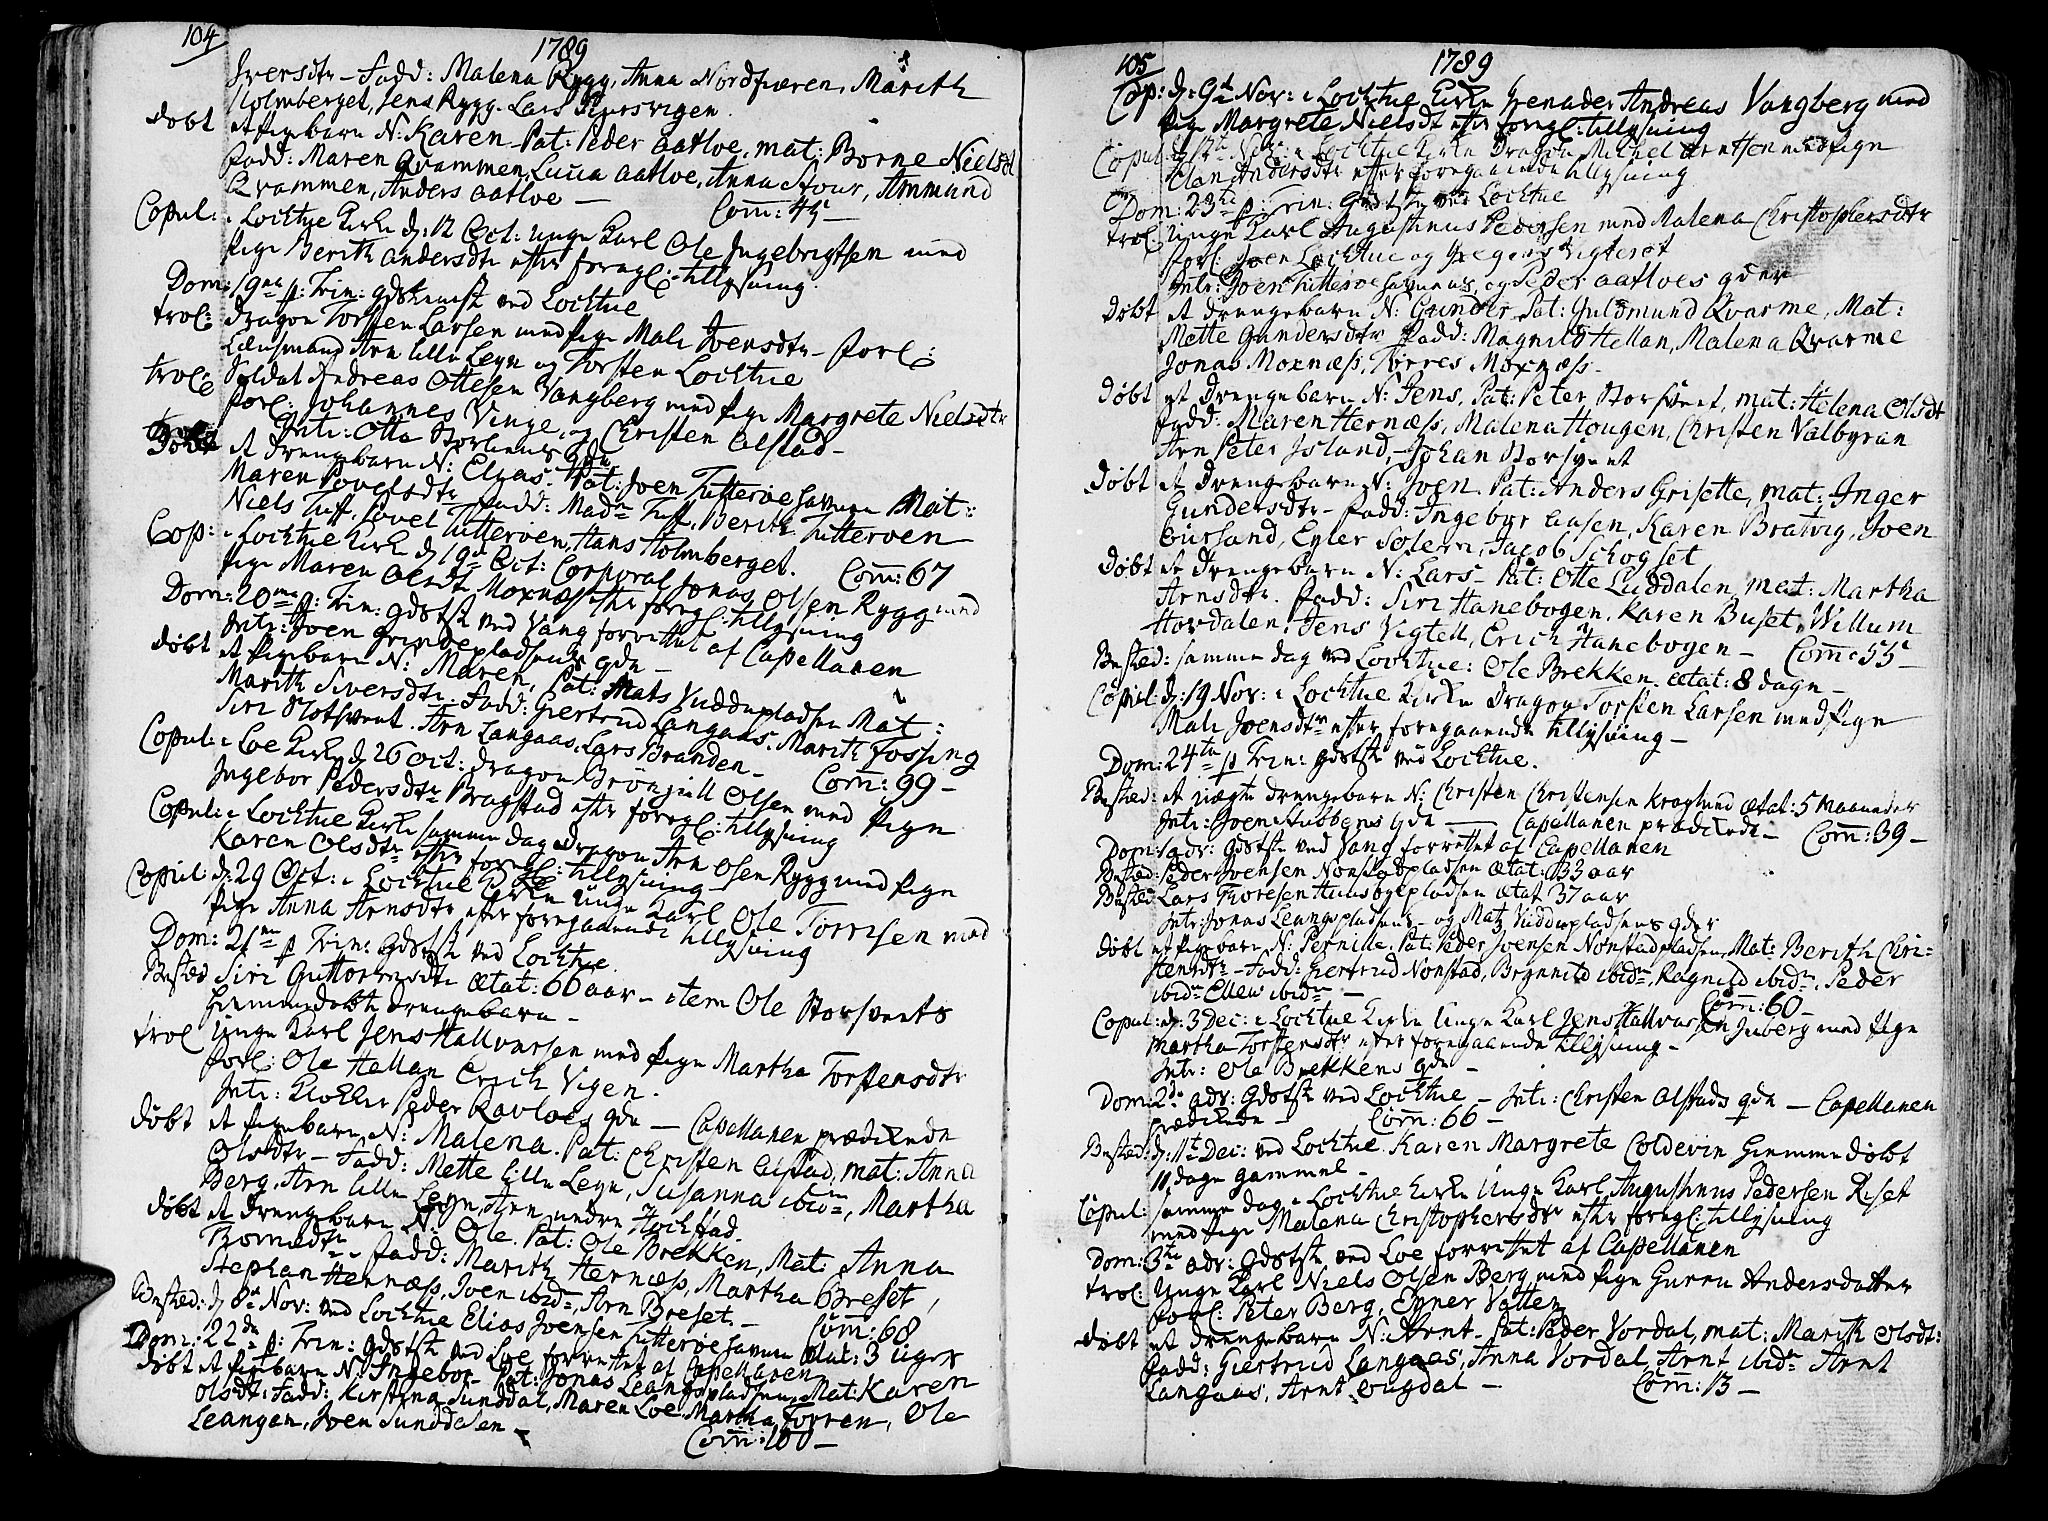 104
1789
Iversdtr – Fadd: Malena Rygg, Anna Nordfieren, Marith
Holmberget, Jens Rygg. Lars
døbt et Pigebarn N: Karen Pat: Peder Aatloe, mat: Borne Nielsdt
Fadd: Maren Qvammen, Lucia Aatloe, Anna Stour, Ammund
Qvammen, Anders Aatloe — Com: 45 —
Copul: i Lochtue Kirke d: 12 Oct: unge Karl Ole Ingebrigtsen med
Pige Berith Andersdtr efter foregl: tillysning.
Dom: 19na p: Trin: gdstienist ved Lochtue
trol: Dragon Torsten Larsen med Pige Mali Joensdtr – forl:
Lensmand Arn lille Leyn og Torsten Lochtue
trol: Soldat Andreas Ottesen Vangberg med Pige Margrete Nielsdtr
forl: Johannes Vinge, og Christen Alstad –
Intr: Otte
Døbt et drengebarn N: Elias. Pat: Joen Tutterøehavnen Mat:
Maren Povelsdtr Fadd: Madm Tuff, Berith Tutterøen
Niels Tuff, Povel Tutterøen, Hans Holmberget. Com: 67
Cop: i Lochtue Kirke d: 19d Oct: Corporal Jonas Olsen Rygg med
Pige Maren Olsdt Moxness efter foregl: tillysning
Dom: 20ma p: Trin: gdstst ved Vang forrettet af Capellanen
Intr: Joen Grindepladsens qde –
døbt et Pigebarn N: Maren, Pat: Mats Vuddupladsen Mat:
Marith Siversdtr – Fadd: Giertrud Langaas, Marith Fossing
Siri Slotsveet. Arn Langaas, Lars Branden – Com: 99 –
Copul: i Loe Kirke d: 26 Oct: Dragon Olsen med Pige
Ingebor Pedersdtr Bragstad efter foregl: tillysning
Copul: i Lochtue Kirke samme dag Dragon Arn Olsen Rygg med Pige
Karen Olsdtr efter foregl: tillysning –
Copul: d: 29 Oct: i Lochtue Kirke unge Karl Ole Torrisen med
Pige Anna Arnsdtr efter foregaaende tillysning
Dom: 21ma p Trin: gdstst ved Lochtue
Bested Siri Guttormsdtr Ætat: 66 aar – item Ole Storsveets
hiemmedøbte drengebarn –
trol Unge Karl Jens Hallvarsen med Pige Martha Torstensdtr
forl: Ole Hallan Erich Vigen.
Intr: Klokker Peder Ravloes qde — Capellanen prædikede
døbt et Pigebarn N: Malena. Pat: Christen Alstad, mat: Anna
Olsdtr – Fadd: Mette lille Leyn, Susanna ibidm, Martha
Berg, Arn lille Leyn, Arn nedre Hochstad.
døbt et drengebarn N: Ole. Pat: Ole Brekken, Mat: Anna
Tromsdtr – Fadd: Marith Hernæss, Martha Breset,
Stephan Hernæss, Joen ibidm, Arn Breset – Com: 68
Bested: d 8de Nov: ved Lochtue Elias Joensen Tutterøehavnen Ætat: 3 uger
Dom: 22de p: Trin: gdstst ved Loe forrettet af Capellanen
døbt et Pigebarn N: Ingebor. Pat: Jonas Leangspladsen, Mat: Karen
Olsdt: Fadd: Kirstina Sunddal, Maren Loe, Martha Torren, Ole
Leangen, Joen Sunddalen – Com: 100 –
105
1789
Cop: d: 9de Nov: i Lochtue Kirke Grenader Andreas Vangberg med
Pige Margrete Nielsdt efter foregl: tillysning
Copul: d: Nov: i Lochtue Kirke Dragon Michel Arntsen med Pige
Andersdtr efter foregaaende tillysning
Dom: 23de p: Trin: gdstst ved Lochtue
trol: Unge Karl Augustinus Pedersen med Malena Christophersdtr
forl: Joen Lochtue og Vigteret
Intr: Joen Tutterøehavnens, og Peder Aatloes qder
døbt et drengebarn N: Gunder Pat: Guldmund Qvarme, Mat:
Mette Gundersdtr Fadd: Magnild Hellan, Malena Qvarme
Jonas Moxnæss, Torres Moxnæss –
døbt et drengebarn N: Jens, Pat: Peter Storsveet, mat: Helena Olsdt
Fadd: Maren Hernæss, Malena Hougen, Christen Valbyran
Arn Peter Island, Johan Storsveet
døbt et drengebarn N: Joen. Pat: Anders Grisette, mat: Inger
Gundersdtr – Fadd: Ingebor Aasen, Karen Bratvig, Joen
Oursand, Eyler Solem, Jacob Schogset
døbt et drengebarn N: Lars – Pat: Otte Luddalen, mat: Martha
Arnsdtr. Fadd: Siri Hanebogen, Karen Buset, Willum
Hordalen, Jens Vigtell, Erich Hanebogen – Com: 55 –
Bested: samme dag ved Lochtue: Ole Brekken. Ætat: 8 dage –
Copul: d: 19 Nov: i Lochtue Kirke Dragon Torsten Larsen med Pige
Mali Joensdtr efter foregaaende tillysning –
Dom: 24ta p Trin: gdstst ved Lochtue.
Bested: et uægte drengebarn N: Christen Christensen Kroglund Ætat: 5 Maaneder
Intr: Joen Stubbens qde — Capellanen prædikede – Com: 39 –
Dom: 1 adv: gdstst ved Vang forrettet af Capellanen
Bested: Peder Joensen Nonstadpladsen Ætat: 33 aar
Bested Lars Thoresen Huusbyepladsen Ætat 37 aar
Intr: Jonas Leangspladsens – og Mats Vuddupladsens qder
døbt et Pigebarn N: Pernille. Pat: Peder Joensen Nonstadpladsen, Mat: Berith Chri-
stensdtr – Fadd: Giertrud Nonstad, Brynnild ibidm, Ragnild ibidm, Peder
ibidm Ellew ibidm – Com: 60 –
Copul: d: 3 Dec: i Lochtue Kirke Unge Karl Jens Hallvarsen Inberg med Pige
Martha Torstensdtr efter foregaaende tillysning –
Intr: Ole Brekkens qde –
Dom: 2de adv: gdstst ved Lochtue – Intr: Christen Alstads qde – Capellanen
prædikede – Com: 66 –
Bested: d: 11te Dec: ved Lochtue Karen Margrete Coldevin hiemmedøbt
11 dage gammel –
Copul: samme dag i Lochtue Kirke Unge Karl Augustinus Pedersen Reset
med Pige Malena Christophersdtr efter foregl: tillysning
Dom: 3tie adv: gdstst ved Loe forrettet af Capellanen
trol: Unge Karl Niels Olsen Berg med Pige Gurru Andersdatter
forl: Peter Berg, Einer Vatten
døbt et drengebarn N: Arnt – Pat: Peder Vordal, mat: Marith Olsdt:
Fadd: Giertrud Langaas, Anna Vordal, Arnt ibidm Arnt
Langaas, Arnt Ougdal – Com: 13 –